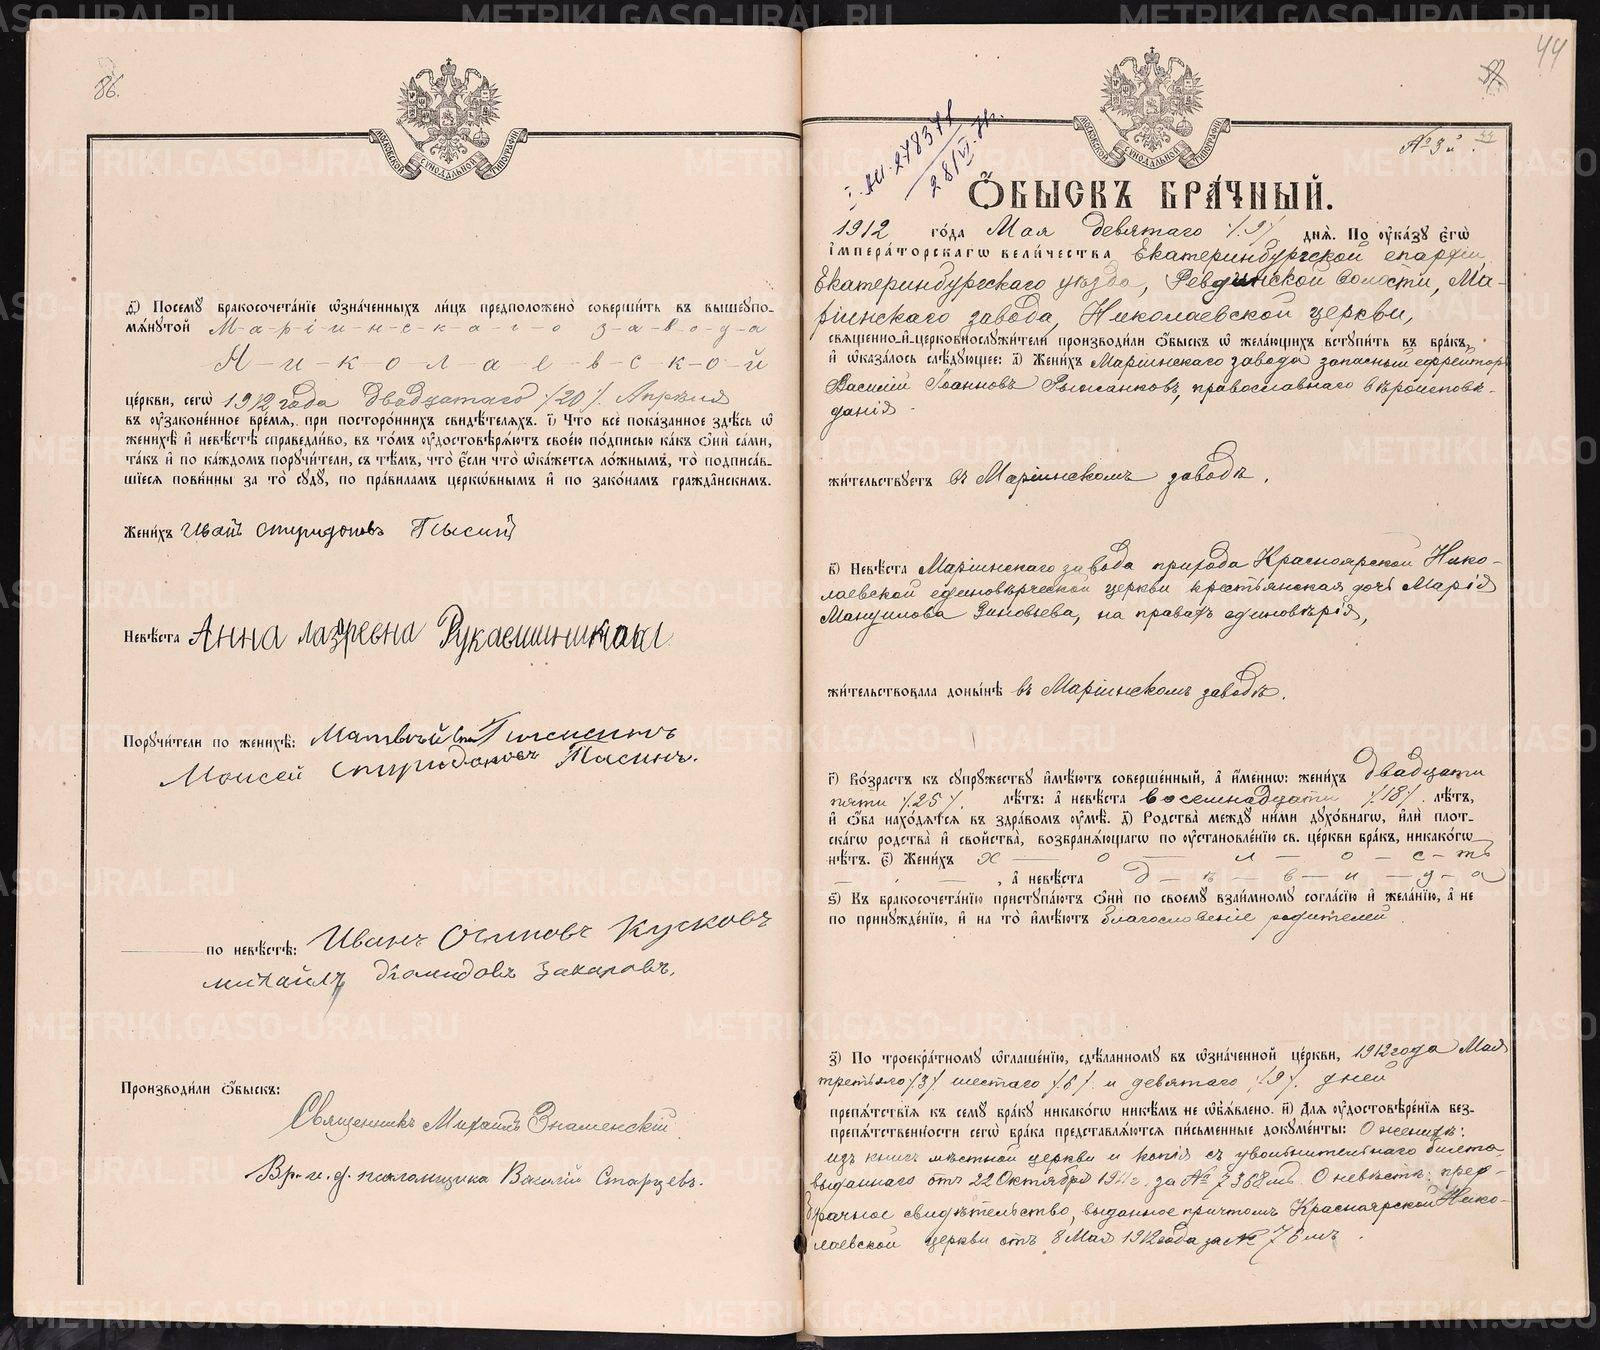 86.
МОСКОВСКОЙ СѴНОДАЛЬНОЙ ТИПОГРАФІИ
д҃) Посемꙋ бракосочетаніе ѡзначенныхъ лицъ предположено совершить въ вышеупо-
мянутой М-а-р-і-и-н-с-к-а-г-о з-а-в-о-д-а
Н-и-к-о-л-а-е-в-с-к-о-й
церкви, сегѡ 1912 года двадцатаго /20/. Апрѣля
въ ᲂузаконенное время, при постороннихъ свидѣтеляхъ. і҃) Что все показанное здѣсь ѡ
женихѣ и невѣстѣ справедливо, въ томъ ᲂудостовѣряютъ своею подписью какъ ѡни сами,
такъ и по каждомъ поручители, съ тѣмъ, что если что ѡкажется ложнымъ, то подписав-
шіеся повинны за то сꙋдꙋ, по правиламъ церкѡвнымъ и по законамъ гражданскимъ.
Женихъ Иванъ Спиридоновъ
Невѣста Анна Лазревна
Порꙋчители по женихѣ: Матвѣй
Моисей Спиридоновъ
по невѣстѣ: Иванъ Осиповъ Кусковъ
Михаилъ Діомидовъ Захаровъ.
Производили ѡбыскъ:
Священникъ Михаилъ Знаменскій
Вр. и. д. псаломщика Василій Старцевъ.
44
87.
№ 3й.
44
МОСКОВСКОЙ СѴНОДАЛЬНОЙ ТИПОГРАФІИ
28/VI
ѠБЫСКЪ БРАЧНЫЙ.
1912 года Мая девятаго /.9/ днѧ. По ᲂукаꙁꙋ Егѡ
Императорскагѡ величества Екатеринбургской епархіи,
Екатеринбургскаго уѣзда, Ревдинской волости, Ма-
ріинскаго завода, Николаевской церкви,
священно-и-церковнослꙋжители производили ѡбыскъ ѡ желающихъ вступить въ бракъ,
и ѡказалось слѣдующее: а҃) Женихъ Маріинскаго завода запасный ефрейторъ
Василій Іоанновъ православнаго вѣроисповѣ-
данія.
жительствꙋетъ въ Маріинскомъ заводѣ.
в҃) Невѣста Маріинскаго завода прихода Красноярской Нико-
лаевской единовѣрческой церкви крестьянская дочь Марія
Мануилова Зиновьева, на правахъ единовѣрія,
жительствовала донынѣ въ Маріинскомъ заводѣ.
г҃) Возрастъ къ сꙋпрꙋжествꙋ имѣютъ совершенный, а именнѡ: женихъ двадцати
пяти /25/. лѣтъ: а невѣста восемнадцати /18/. лѣтъ,
и ѡба находятся въ здравомъ ᲂумѣ. д҃) Родства междꙋ ними дꙋховнагѡ, или плот-
скагѡ родства и свойства, возбраняющагѡ по ᲂустановленію св. церкви бракъ, никакогѡ
нѣтъ. е҃) Женихъ х — о — л — о — с — тъ
, а невѣста д — ѣ — в — и — ц — а
ѕ҃) Къ бракосочетанію пристꙋпаютъ ѡни по своемꙋ взаимномꙋ согласію и желанію, а не
по принꙋжденію, и на то имѣютъ благословеніе родителей.
з҃) По троекратномꙋ ѡглашенію, сдѣланномꙋ въ ѡзначенной церкви, 1912 года Мая
третьяго /3/ шестаго /6/. и девятаго /9/. дней
препятствія къ семꙋ бракꙋ никакогѡ никѣмъ не ѡбъявлено. и҃) Для ᲂудостовѣренія без-
препятственности сегѡ брака представляются письменные документы: О женихѣ:
изъ книгъ мѣстной церкви и копія съ увольнительнаго билета,
выданнаго отъ 22 Октября 1911 г. за № 7368мъ. О невѣстѣ: пред-
брачное свидѣтельство, выданное причтомъ Красноярской Нико-
лаевской церкви отъ 8 Мая 1912 года за № 76мъ.